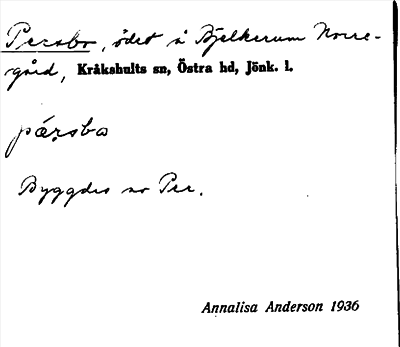 Persbo, ödet å Bjelkerum Norre-
gård, Kråkshults sn, Östra hd, Jönk. l.
pæ̣rsbo
Byggdes av Per.
Annalisa Anderson 1936